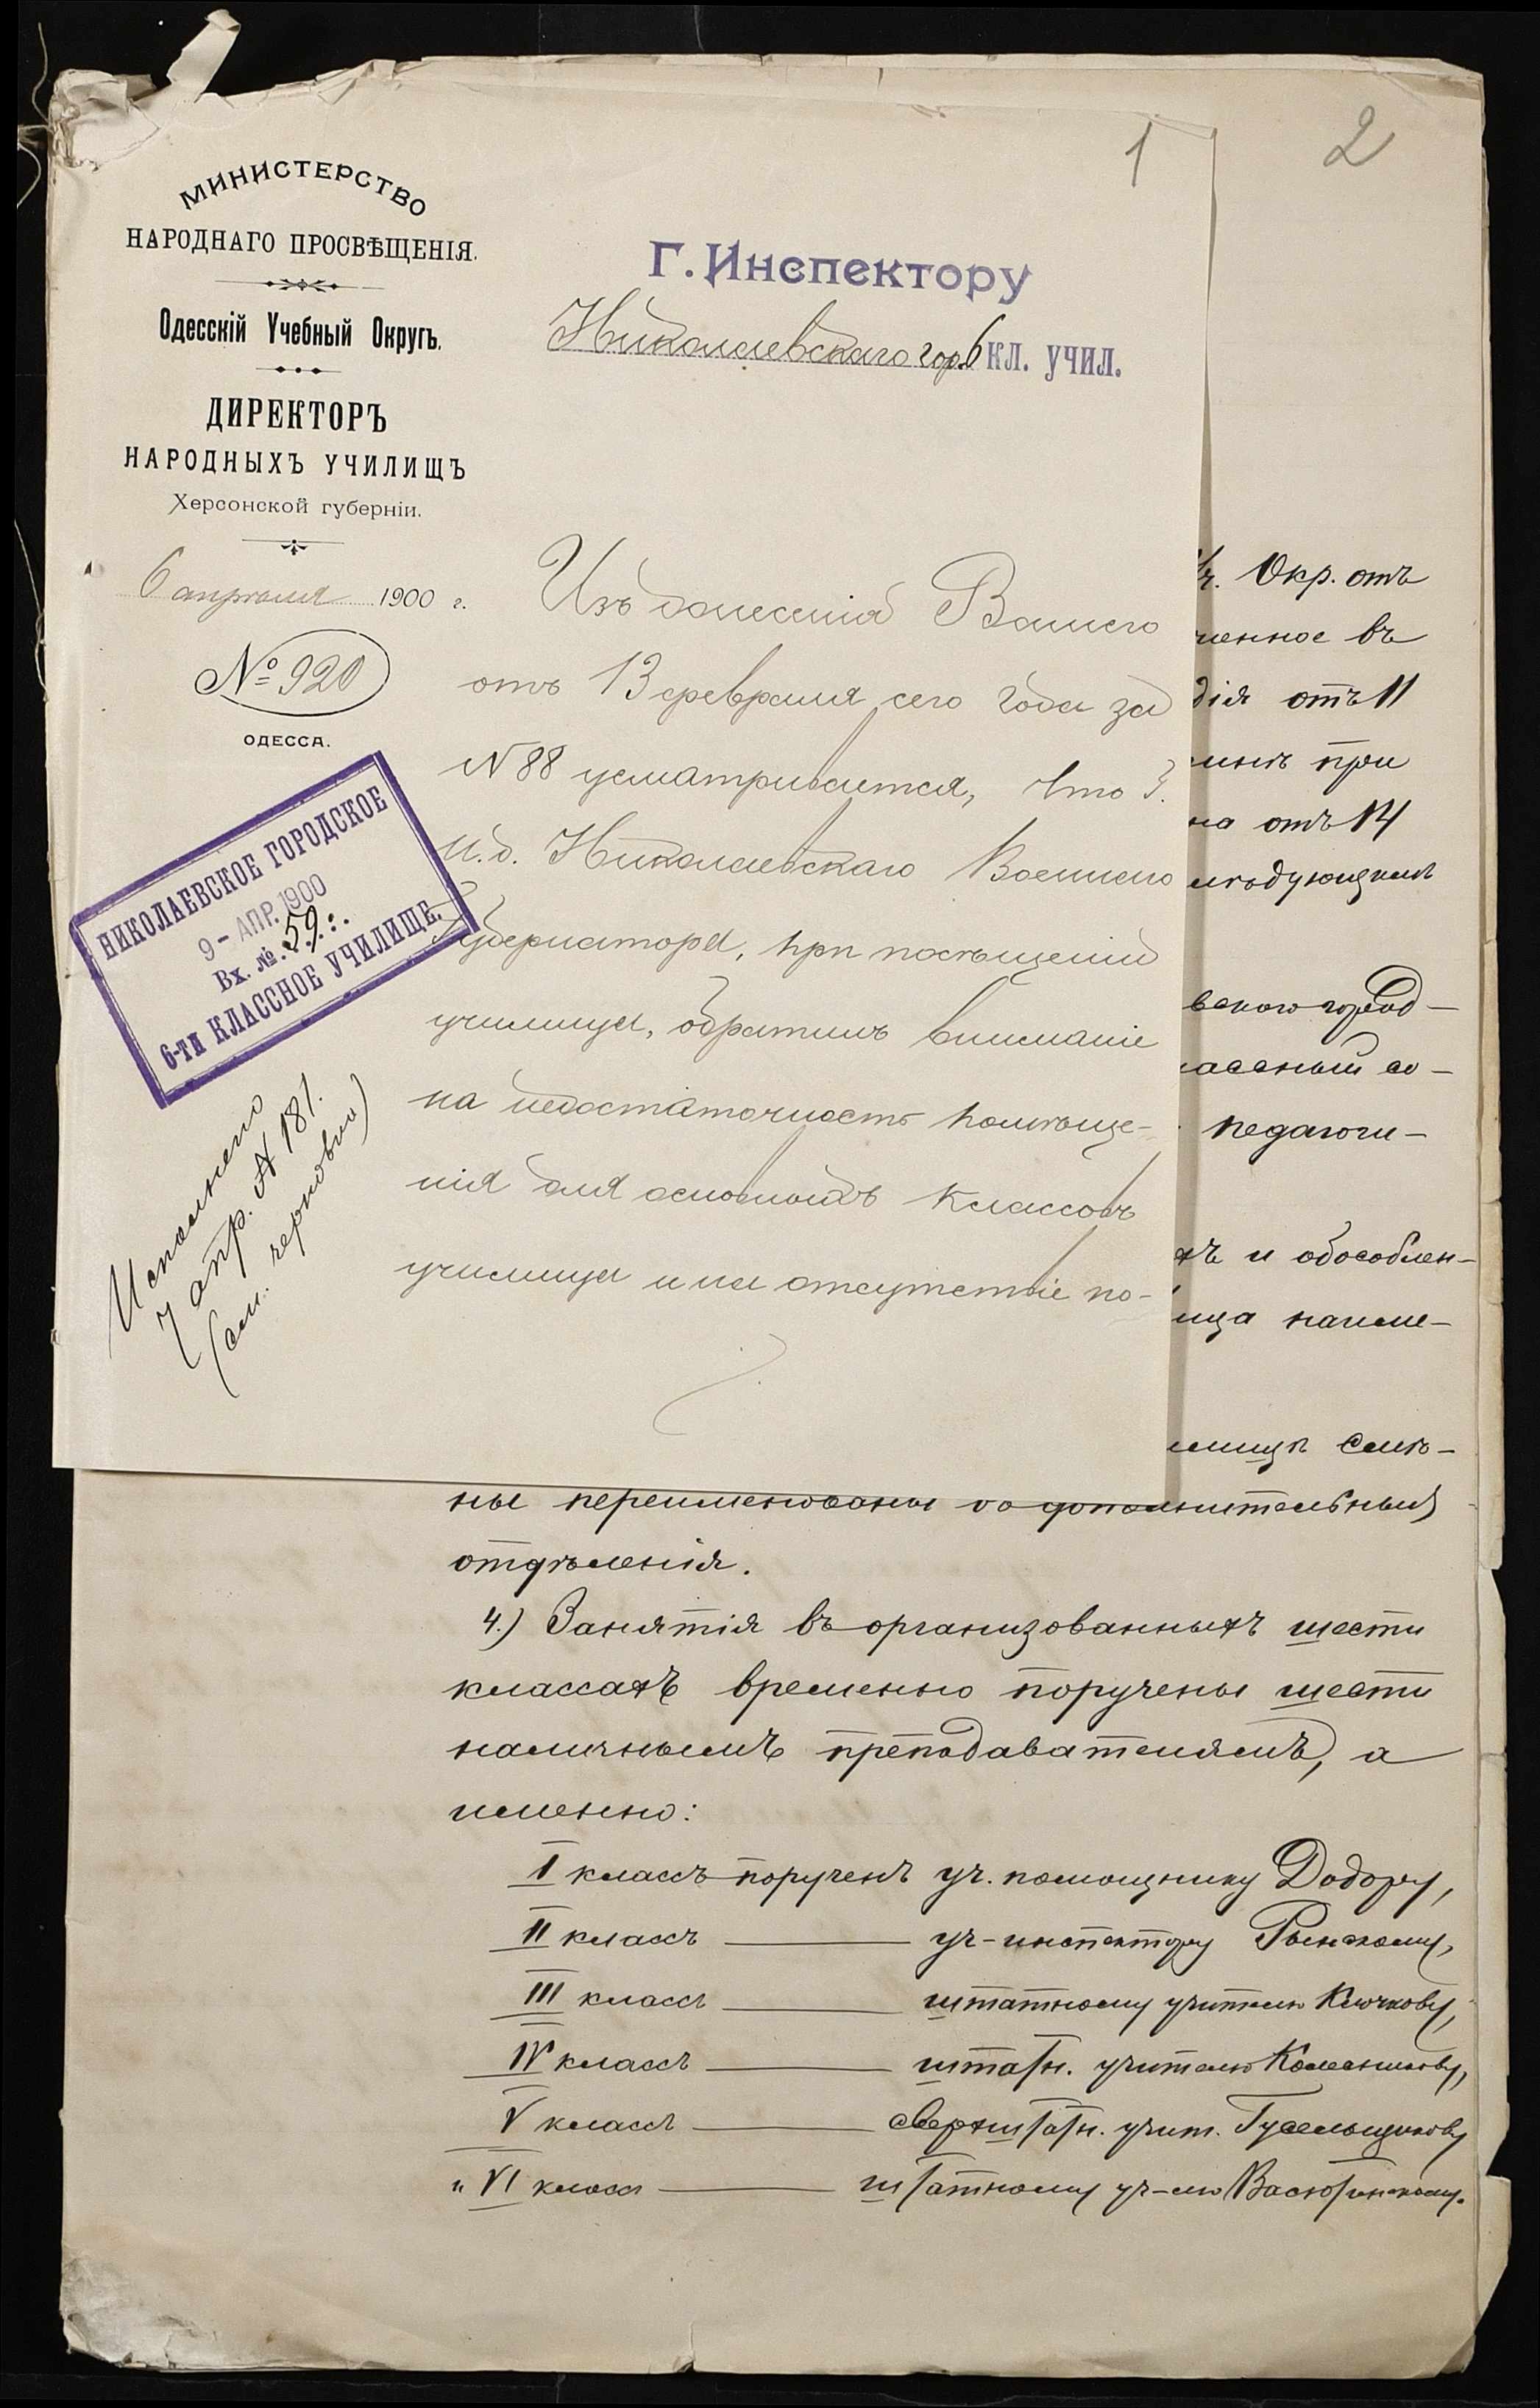 1
2
МИНИСТЕРСТВО
НАРОДНАГО ПРОСВѢЩЕНІЯ.
Одесскій Учебный Округъ.
ДИРЕКТОРЪ
НАРОДНЫХЪ УЧИЛИЩЪ
Херсонской губерніи.
6 апрѣля 1900 г.
№ 920
ОДЕССА.
Г. Инспектору
Николаевскаго гор. 6 КЛ. УЧИЛ.
НИКОЛАЕВСКОЕ ГОРОДСКОЕ
9 – АПР. 1900
Вх. №. 59.
6-ТИ КЛАССНОЕ УЧИЛИЩЕ.
Исполнено
7 апр. № 181.
(см. черновно)
Изъ донесенія Вашего
отъ 13 февраля сего года за
N 88 усматривается, что Г.
И.д. Николаевскаго Военнаго
Губернатора, при посѣщеніи
училища, обратилъ вниманіе
на недостаточность помѣще-
нія для основныхъ классовъ
училища и на отсутствіе по-
Окр. отъ
ченное въ
дія отъ 11
при
на отъ 14
ѣдующемъ
вскаго город-
ассный со-
педагоги-
хъ и обособлен-
ища наиме-
лищѣ смѣ-
ны переименованы во дополнительныя
отдѣленія.
4.) Занятія въ организованныхъ шести
классахъ временно поручены шести
наличнымъ преподавателямъ, а
именно:
I классъ порученъ уч. помощнику Додору,
II классъ — уч-инспектору Рынскому,
III классъ — штатному учителю Ключкову,
IV классъ — штатн. учителю
V классъ — сверхштатн. учит. Гусельщикову
и VI классъ — штатному уч-лю Васютинскому.